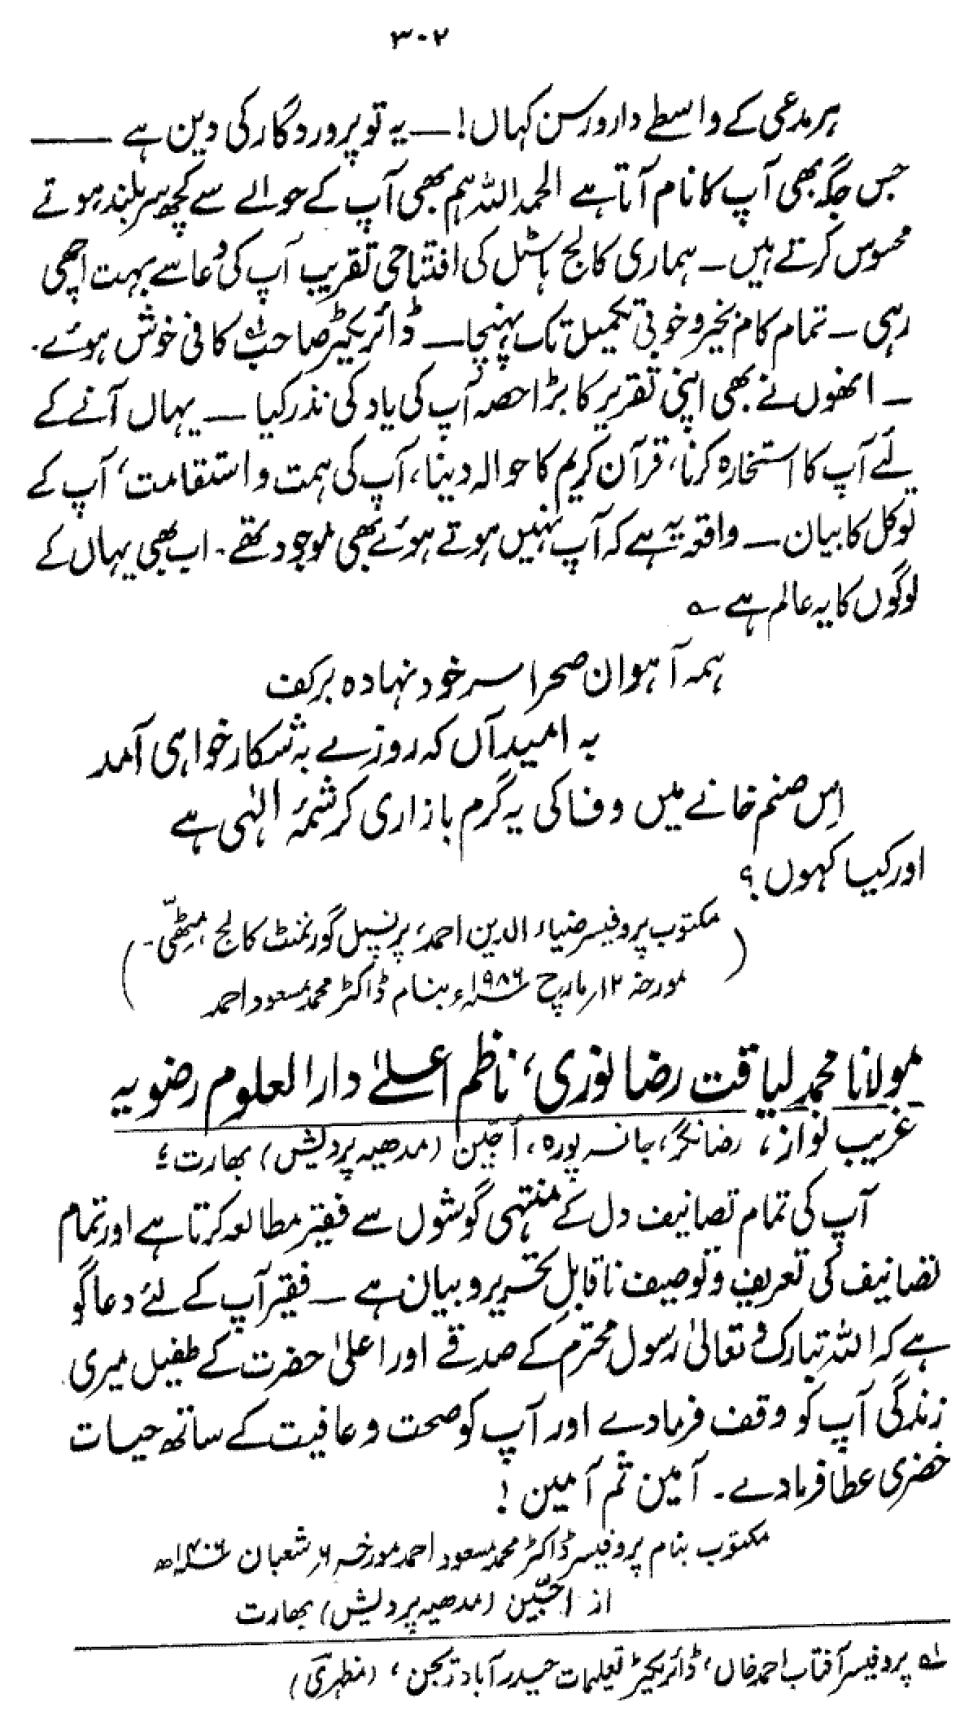 ۳۰۲
ہر مدعی کے واسطے دار و رسن کہاں! — یہ تو پروردگار کی دین ہے —
جس جگہ بھی آپ کا نام آتا ہے الحمد اللہ ہم بھی آپ کے حوالے سے کچھ سر بلند ہوتے
محسوس کرتے ہیں ۔ ہماری کالج ہاسٹل کی افتتاحی تقریب آپ کی دُعا سے بہت اچھی
رہی ۔ تمام کام بخیر و خوبی تکمیل تک پہنچا — ڈائریکٹر صاحب لہ کافی خوش ہوئے.
۔ انھوں نے بھی اپنی تقریر کا بڑا حصہ آپ کی یاد کی نذر کیا — یہاں آنے کے
لئے آپ کا استخارہ کرنا، قرآن کریم کا حوالہ دینا، آپ کی ہمت و استقامت، آپ کے
توکل کا بیان — واقعہ یہ ہے کہ آپ نہیں ہوتے ہوئے بھی موجود تھے ۔ اب بھی یہاں کے
لوگوں کا یہ عالم ہے ؎
ہمہ آہوان صحرا سر خود نہادہ بر کف
بہ امید آں کہ روزے بہ شکار خواہی آمد
اِس صنم خانے میں وفا کی یہ گرم بازاری کرشمۂ الٰہی ہے
اور کیا کہوں ؟
(مکتوب پروفیسر ضیاء الدین احمد، پرنسپل گورنمنٹ کالج مٹھّی۔
مورخہ ۱۲ر مارچ ۱۹۸۶ء بنام ڈاکٹر محمد مسعود احمد)
مولانا محمد لیاقت رضا نوری، ناظم اعلےٰ دارالعلوم رضویہ
غریب نواز، رضا نگر، جانسہ پورہ، اُجّین (مدھیہ پردیش) بھارت؛
آپ کی تمام تصانیف دل کے منتہی گوشوں سے فقیر مطالعہ کرتا ہے اور تمام
تصانیف کی تعریف و توصیف ناقابلِ تحریر و بیان ہے — فقیر آپ کے لئے دعا گو
ہے کہ اللہ تبارک و تعالیٰ رسول محترم کے صدقے اور اعلیٰ حضرت کے طفیل میری
زندگی آپ کو وقف فرما دے اور آپ کو صحت و عافیت کے ساتھ حیات
خضری عطا فرما دے ۔ آمین ثم آمین !
مکتوب بنام پروفیسر ڈاکٹر محمد مسعود احمد مورخہ ۶ر شعبان ۱۴۰۶ھ
از اجّین (مدھیہ پردیش) بھارت
لہ پروفیسر آفتاب احمد خاں، ڈائریکٹر تعلیمات حیدر آباد ریجن، (مظہری)